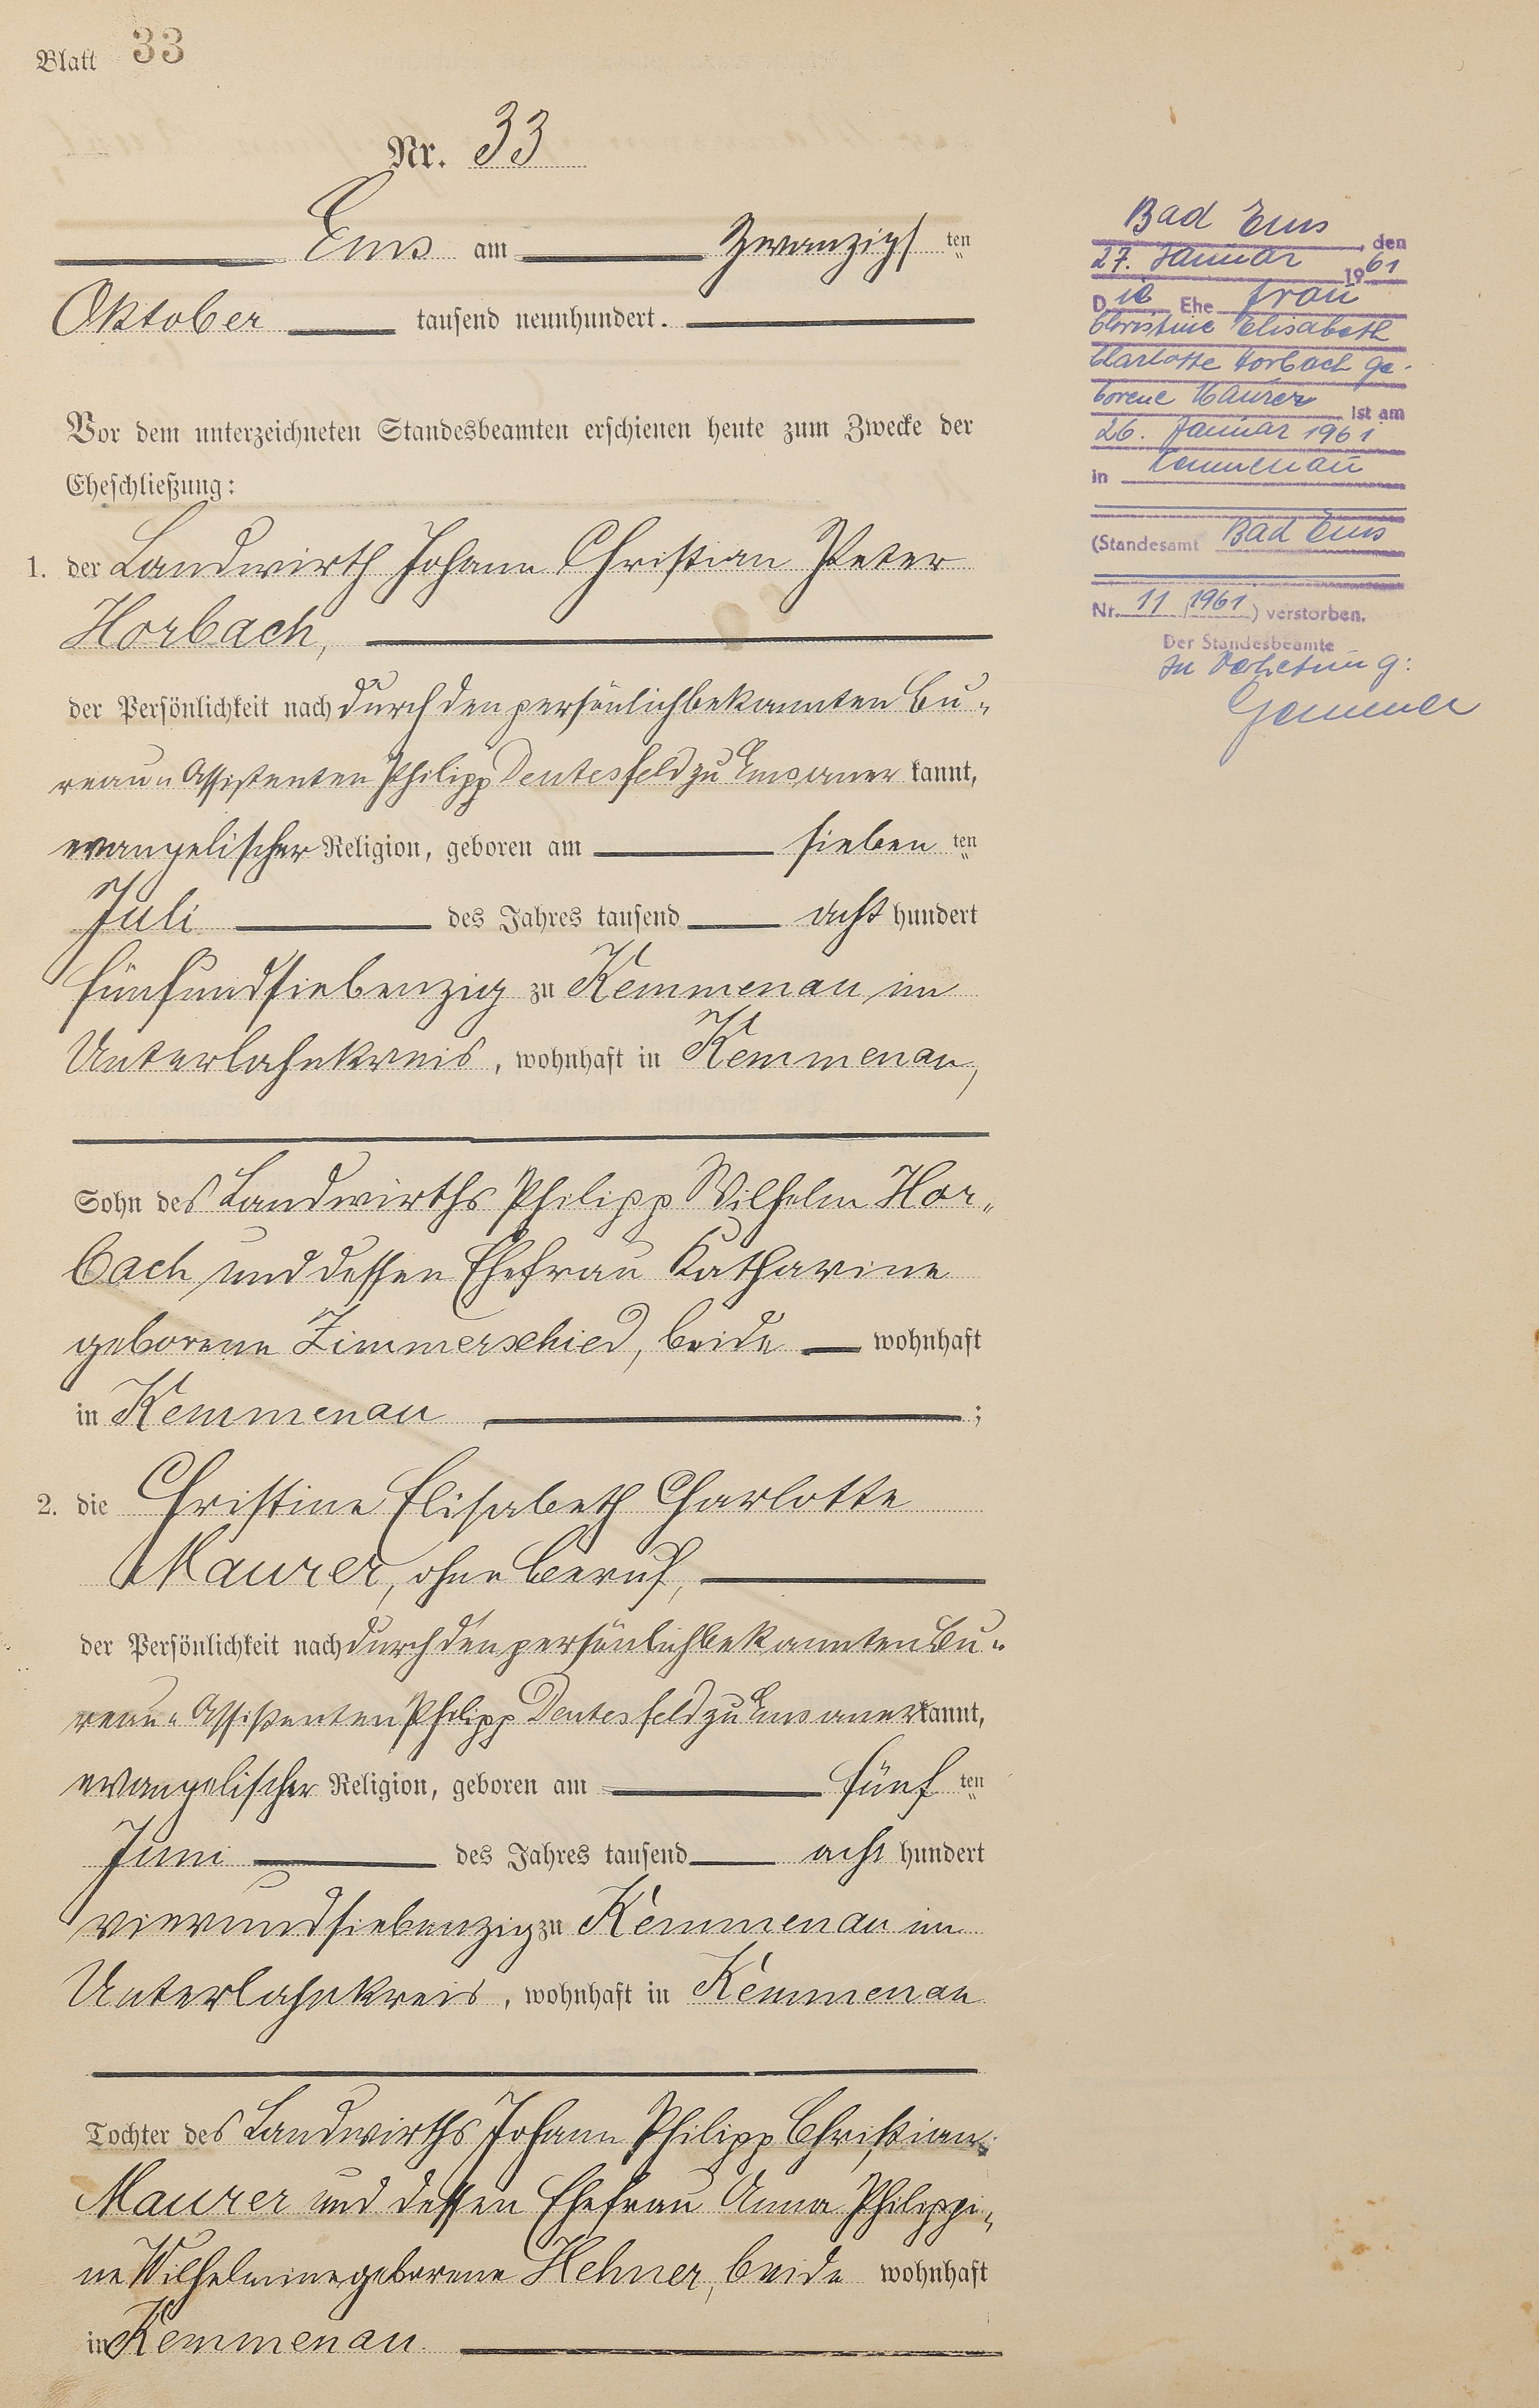 Blatt 33
Nr. 33
Ems am Zwanzigsten
Oktober tausend neunhundert.
Vor dem unterzeichneten Standesbeamten erschienen heute zum Zwecke der
Eheschließung:
1. der Landwirth Johann Christian Peter
Horbach,
der Persönlichkeit nach durch den persönlich bekannten Bu-
reau-Assistenten Philipp Deutesfeld zu Ems anerkannt,
evangelischer Religion, geboren am siebenten
Juli des Jahres tausend acht hundert
fünfundsiebenzig zu Kemmenau im
Unterlahnkreis, wohnhaft in Kemmenau,
Sohn des Landwirths Philipp Wilhelm Hor-
bach und dessen Ehefrau Katharine
geborene Zimmerschied, beide wohnhaft
in Kemmenau ;
2. die Christine Elisabeth Charlotte
Maurer, ohne Beruf,
der Persönlichkeit nach durch den persönlich bekannten Bu-
reau-Assistenten Philipp Deutesfeld zu Ems anerkannt,
evangelischer Religion, geboren am fünften
Juni des Jahres tausend acht hundert
vierundsiebenzig zu Kemmenau im
Unterlahnkreis, wohnhaft in Kemmenau
Tochter des Landwirths Johann Philipp Christian
Maurer und dessen Ehefrau Anna Philippi-
ne Wilhelmine geborene Hehner, beide wohnhaft
in Kemmenau.
Bad Ems, den
27. Januar 1961
Die Ehefrau
Christine Elisabeth
Charlotte Horbach ge-
borene Maurer ist am
26. Januar 1961
in Kemmenau
(Standesamt Bad Ems
Nr. 11/1961) verstorben.
Der Standesbeamte
In Vertretung: